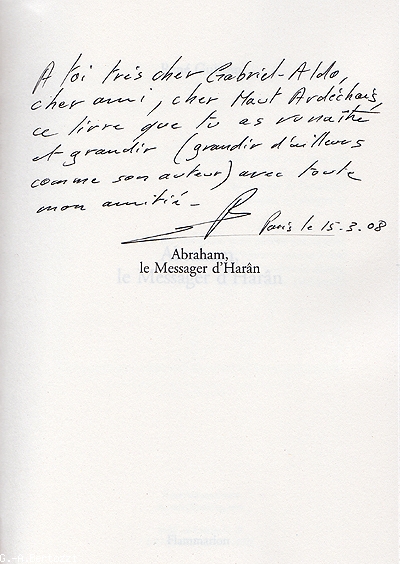 A toi très cher Gabriel-Aldo,
cher ami, cher Haut Ardéchois,
ce livre que tu as vu naître
et grandir (grandir d'ailleurs
comme son auteur) avec toute
mon amitié -
Paris le 15.3.08
Abraham,
le Messager d'Harân
le Messager d'Harân
Flammarion